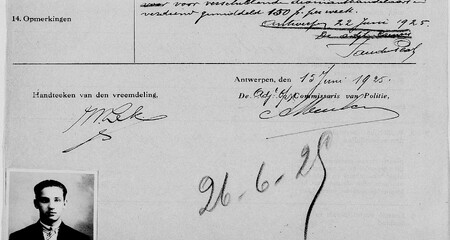 voor verschillende diamanthandelaars en
14. Opmerkingen
verdiend gemiddeld 150 fr per week.
Antwerpen 22 Juni 1925.
Antwerpen, den 15 Juni 1925.
Handteeken van den vreemdeling,
De Adj. Commissaris van Politie,
26-6-25